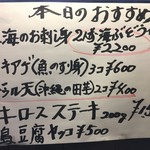 本日のおすすめ
海のお刺身 2点 海ぶどう
¥2200
キアゲ(魚のすり身) 3コ ¥600
の天(沖縄の田芋) 2コ ¥400
キロースステーキ 200g
島豆腐ヤッコ ¥500